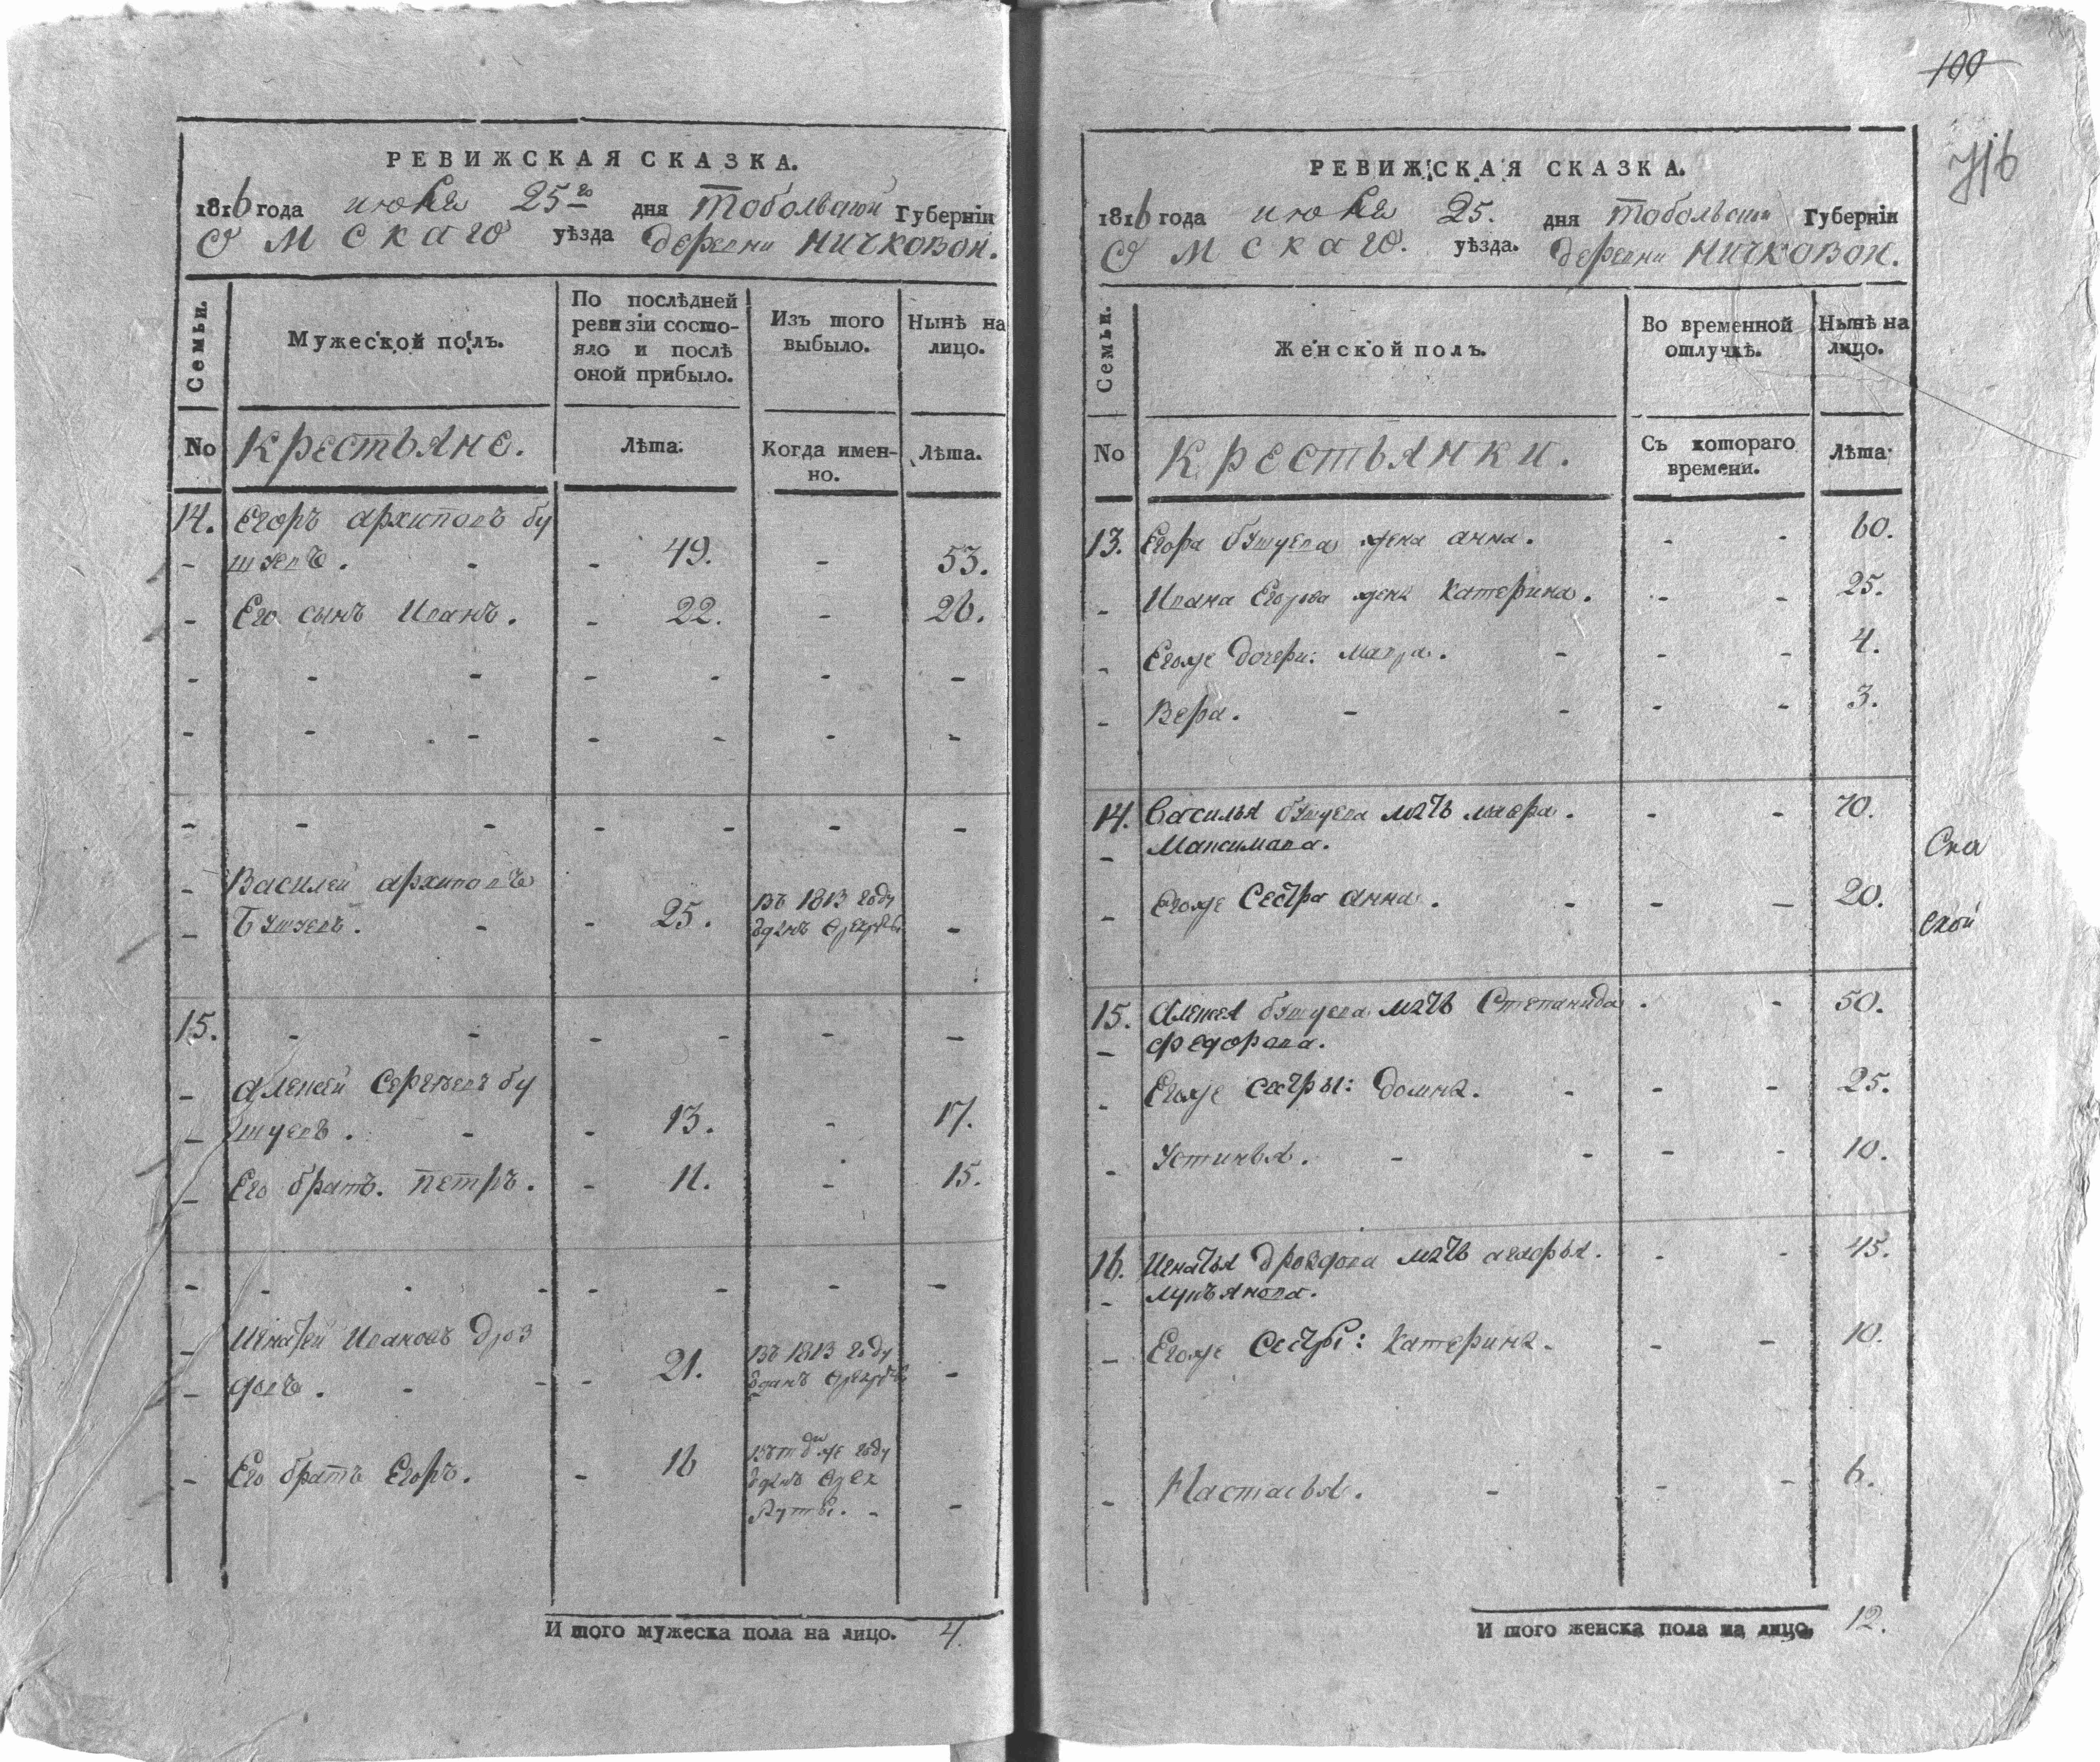 РЕВИЖСКАЯ СКАЗКА.
1816 года июня 25го дня Тобольской Губерніи
Омскаго уѣзда деревни Ничковой.
Семьи.
Мужеской полъ.
По послѣдней ревизіи состояло и послѣ оной прибыло.
Изъ того выбыло.
Нынѣ на лицо.
No Крестьяне. Лѣта. Когда именно. Лѣта.
14. Егоръ Архиповъ Бу
шуевъ. - - 49. - 53.
- Его сынъ Иванъ. - 22. - 26.
- Василей Архиповъ
- Бушуевъ. - - 25. въ 1813 году -
15.
- Алексей Сергеевъ Бу
- шуевъ. - - 13. - 17.
- Его братъ. Петръ. - 11. - 15.
- Игнатей Ивановъ Дроз
- довъ. - - 21. въ 1813 году -
- Его братъ Егоръ. - 16 году -
И того мужеска пола на лицо. 4.
100
716
РЕВИЖСКАЯ СКАЗКА.
1816 года июня 25. дня Тобольской Губерніи
Омскаго. уѣзда. деревни Ничковой.
Семьи.
Женской полъ.
Во временной отлучкѣ.
Нынѣ на лицо.
No Крестьянки. Съ котораго времени. Лѣта.
13. Егора Бушуева жена Анна. - - 60.
- Ивана Егорова жена Катерина. - - 25.
- Егоже дочери: Мавра. - - - 4.
- Вера. - - - - 3.
14. Василья Бушуева мать Мавра. - - 70.
- Максимова.
Ска
- Егоже сестра Анна. - - - 20.
ской
15. Алексея Бушуева мать Степанида. - 50.
- Федорова.
- Егоже сестры: Домна. - - - 25.
- Устинья. - - - - 10.
16. Игнатья Дроздова мать - - 45.
- Лукьянова.
- Егоже сестры: Катерина. - - 10.
- Настасья. - - - 6.
И того женска пола на лицо. 12.